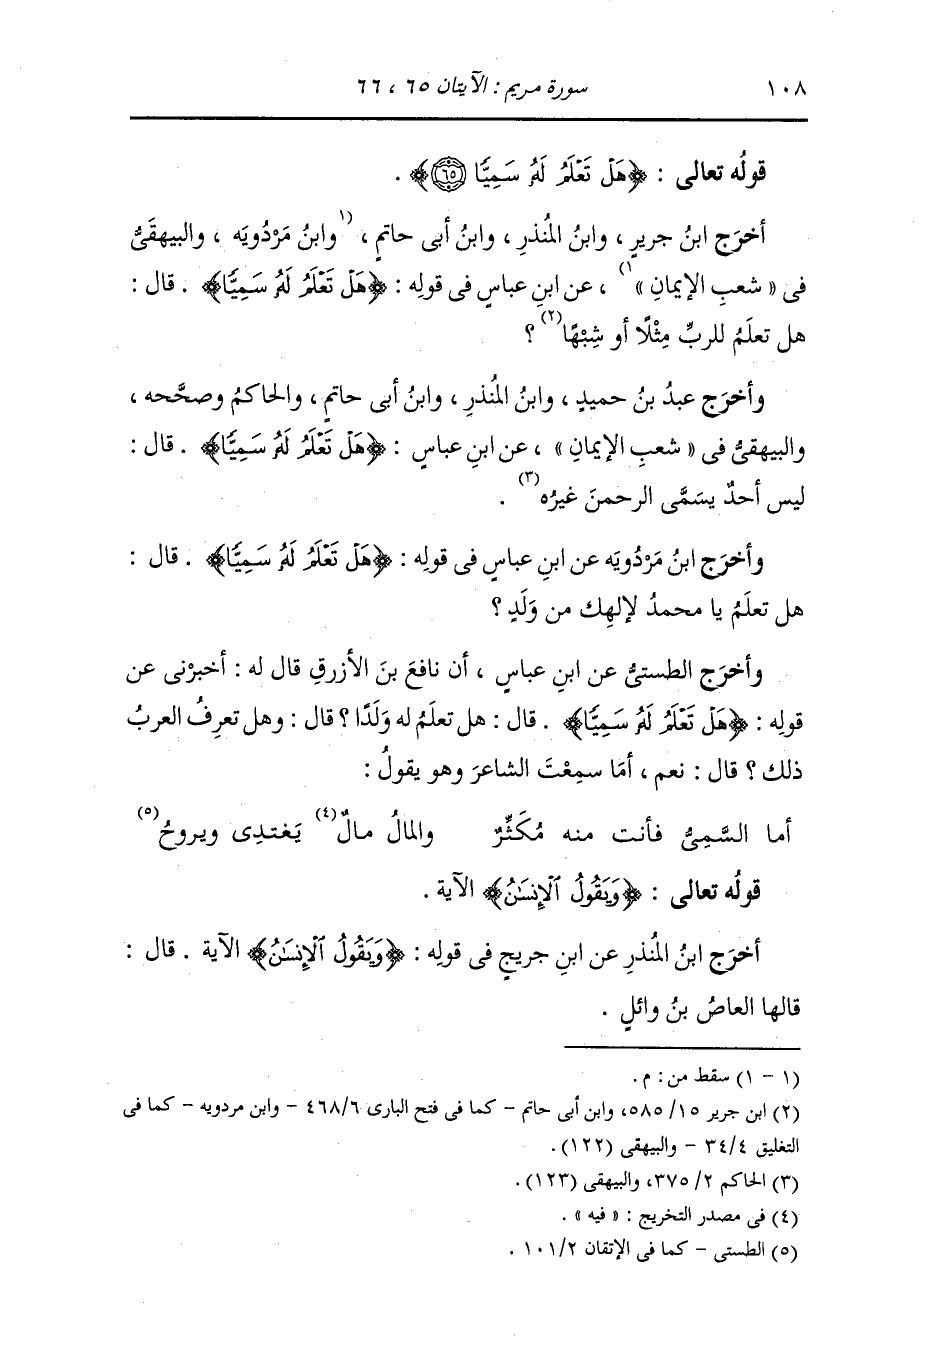 ١٠٨ سورة مريم : الآيتان ٦٥ ، ٦٦
قولُه تعالى : ﴿هَلْ تَعْلَمُ لَهُ سَمِيًّا ٦٥﴾ .
أخرَج ابنُ جريرٍ ، وابنُ المُنذرِ ، وابنُ أبى حاتمٍ ، (١وابنُ مَرْدُويَه ، والبيهقىُّ
فى « شعبِ الإيمانِ »١) ، عن ابنِ عباسٍ فى قولِه : ﴿هَلْ تَعْلَمُ لَهُ سَمِيًّا﴾ . قال :
هل تعلَمُ للربِّ مِثْلًا أو شِبْهًا(٢) ؟
وأخرَج عبدُ بنُ حميدٍ ، وابنُ المُنذرِ ، وابنُ أبى حاتمٍ ، والحاكمُ وصحَّحه ،
والبيهقىُّ فى « شعبِ الإيمانِ » ، عن ابنِ عباسٍ : ﴿هَلْ تَعْلَمُ لَهُ سَمِيًّا﴾ . قال :
ليس أحدٌ يسَمَّى الرحمنَ غيرُه(٣) .
وأخرَج ابنُ مَرْدُويَه عن ابنِ عباسٍ فى قولِه : ﴿هَلْ تَعْلَمُ لَهُ سَمِيًّا﴾ . قال :
هل تعلَمُ يا محمدُ لإلهِك من وَلَدٍ ؟
وأخرَج الطستىُّ عن ابنِ عباسٍ ، أن نافعَ بنَ الأزرقِ قال له : أخبرْنى عن
قولِه : ﴿هَلْ تَعْلَمُ لَهُ سَمِيًّا﴾ . قال : هل تعلَمُ له وَلَدًا ؟ قال : وهل تعرِفُ العربُ
ذلك ؟ قال : نعم ، أمَا سمِعْتَ الشاعرَ وهو يقولُ :
أما السَّمِىُّ فأنت منه مُكَثِّرٌ والمالُ مالٌ(٤) يَغتدِى ويروحُ(٥)
قولُه تعالى : ﴿وَيَقُولُ ٱلْإِنسَٰنُ﴾ الآية .
أخرَج ابنُ المُنذرِ عن ابنِ جريجٍ فى قولِه : ﴿وَيَقُولُ ٱلْإِنسَٰنُ﴾ الآية . قال :
قالها العاصُ بنُ وائلٍ .
(١ - ١) سقط من : م .
(٢) ابن جرير ١٥/ ٥٨٥، وابن أبى حاتم - كما فى فتح البارى ٤٦٨/٦ - وابن مردويه - كما فى
التغليق ٣٤/٤ - والبيهقى (١٢٢) .
(٣) الحاكم ٢/ ٣٧٥، والبيهقى (١٢٣) .
(٤) فى مصدر التخريج : « فيه » .
(٥) الطستى - كما فى الإتقان ١٠١/٢ .